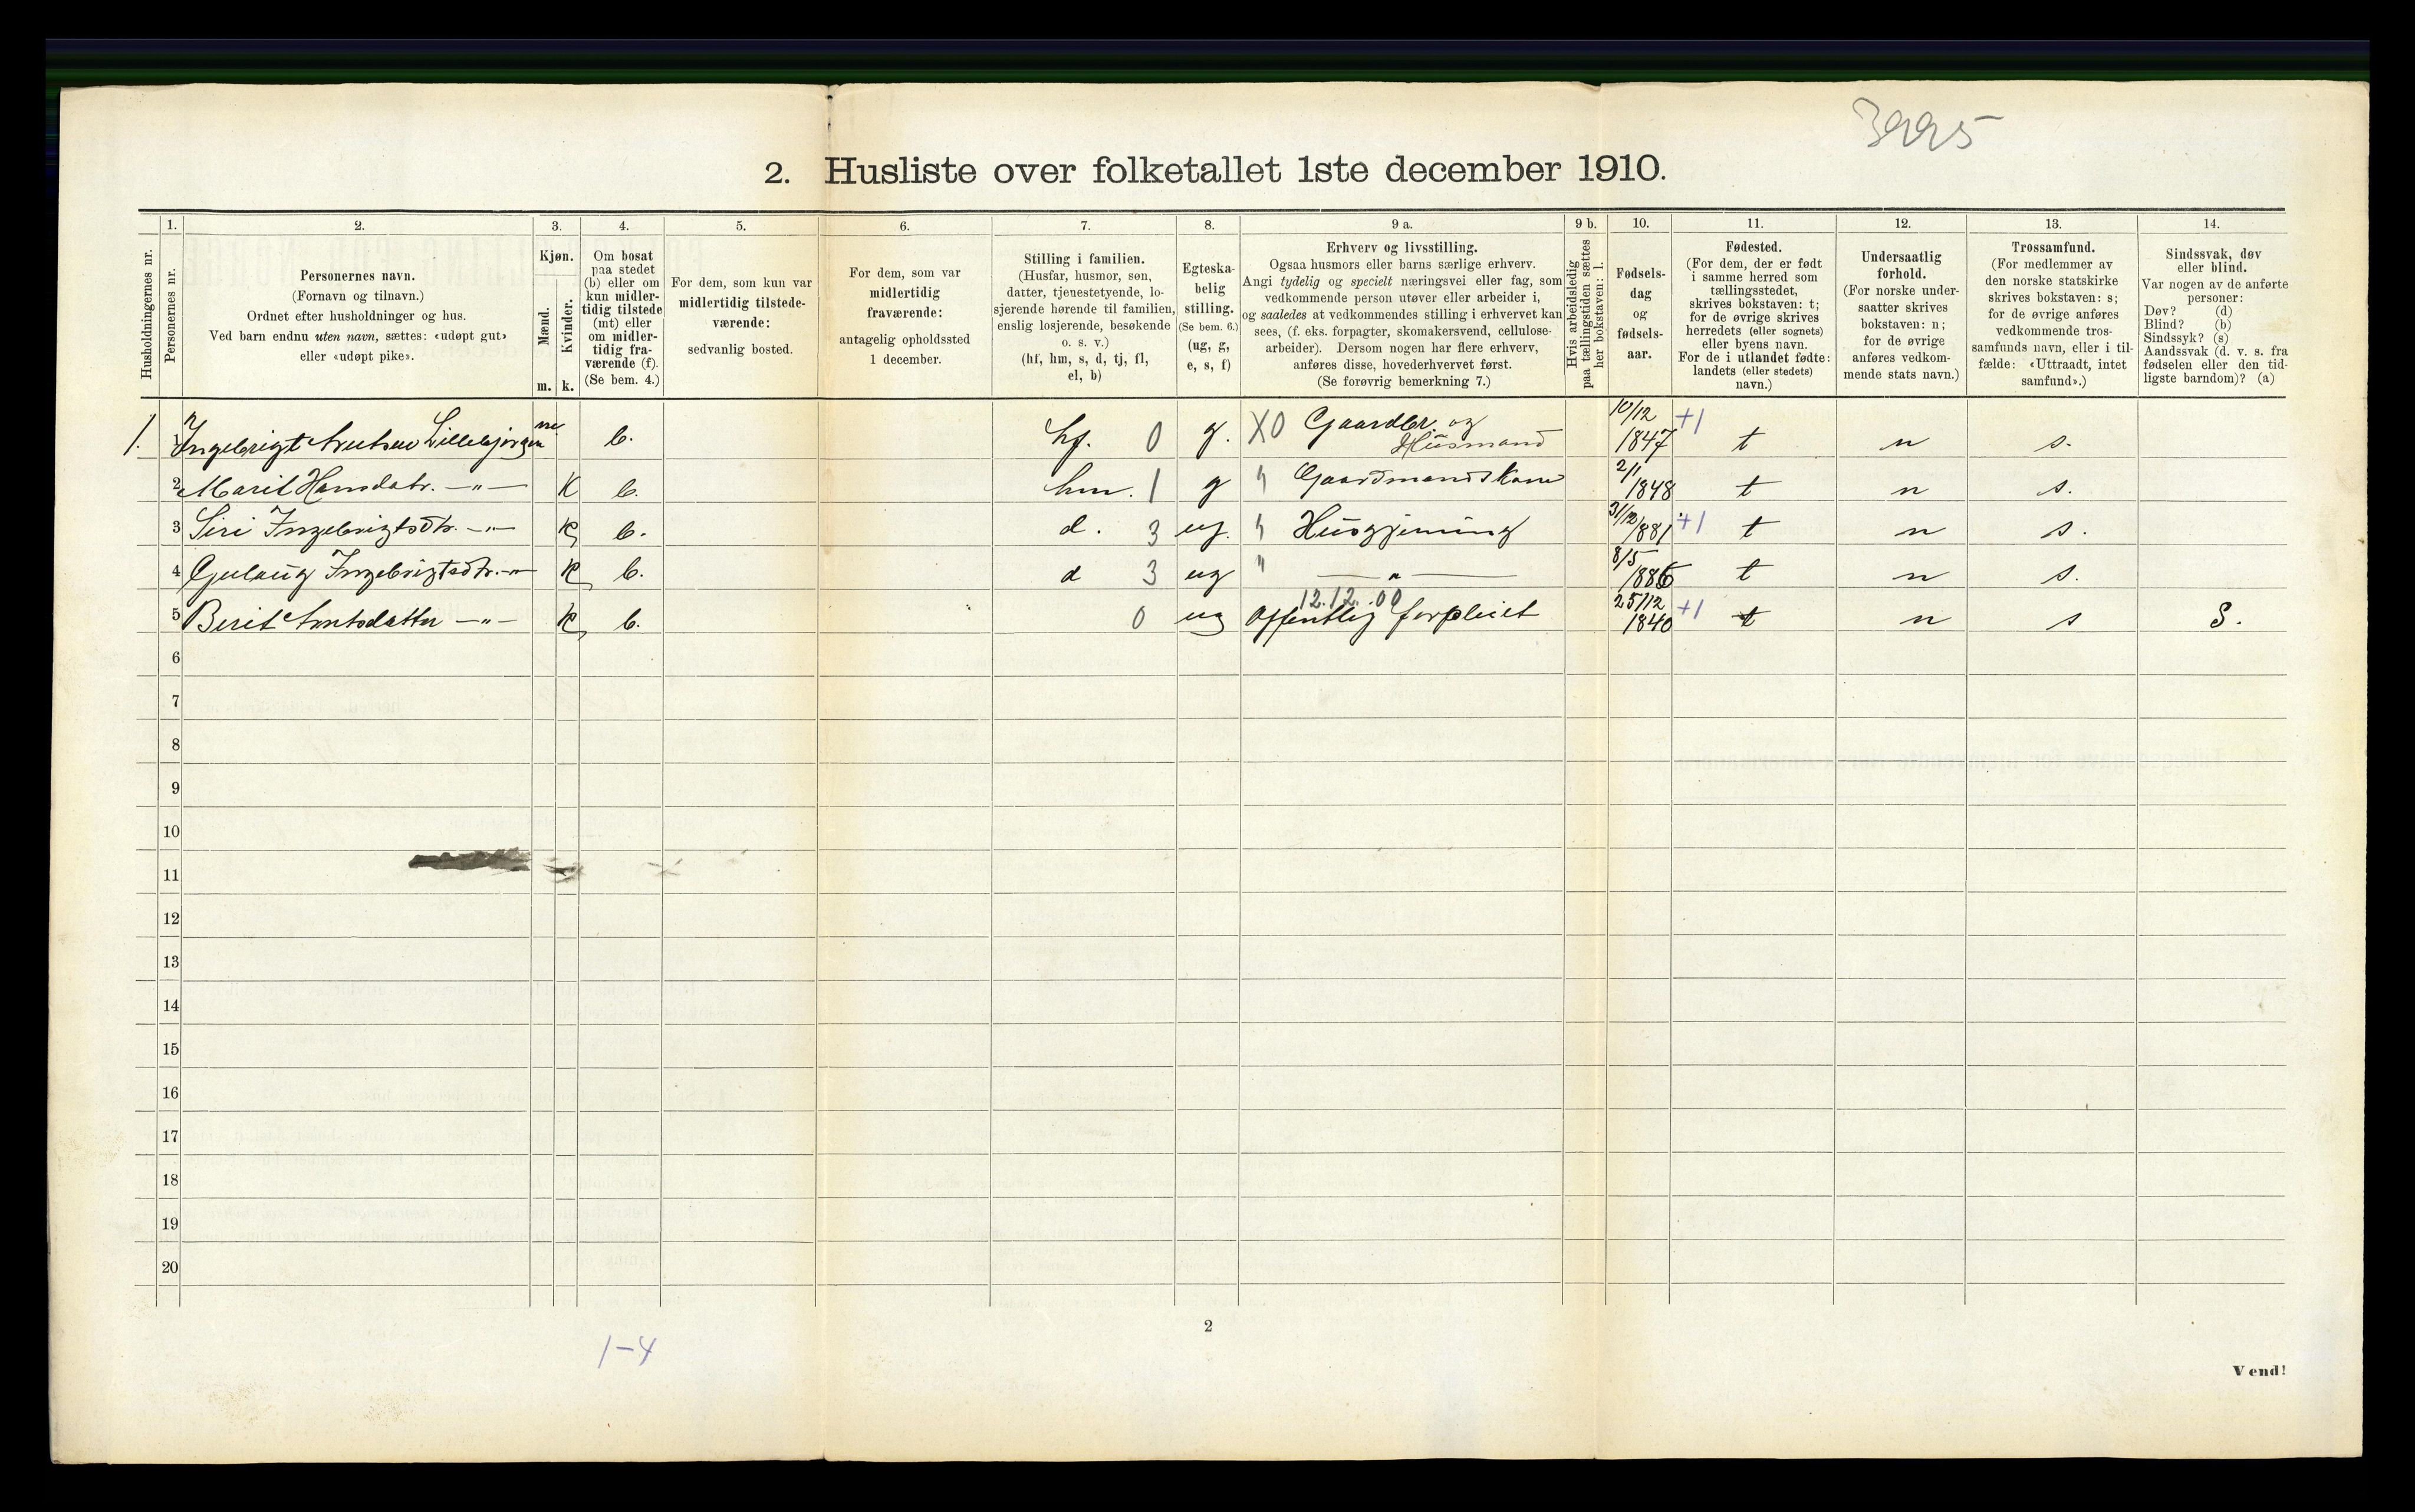 3995
2. Husliste over folketallet 1ste december 1910.
Husholdningernes nr.
1.
Personernes nr.
2.
Personernes navn.
(Fornavn og tilnavn.)
Ordnet efter husholdninger og hus.
Ved barn endnu uten navn, sættes: «udøpt gut»
eller «udøpt pike».
3.
Kjøn.
Mænd.
Kvinder.
m. k.
4.
Om bosat
paa stedet
(b) eller om
kun midler-
tidig tilstede
(mt) eller
om midler-
tidig fra-
værende (f).
(Se bem. 4.)
5.
For dem, som kun var
midlertidig tilstede-
værende:
sedvanlig bosted.
6.
For dem, som var
midlertidig
fraværende:
antagelig opholdssted
1 december.
7.
Stilling i familien.
(Husfar, husmor, søn,
datter, tjenestetyende, lo-
sjerende hørende til familien,
enslig losjerende, besøkende
o. s. v.)
(hf, hm, s, d, tj, fl,
el, b)
8.
Egteska-
belig
stilling.
(Se bem. 6.)
(ug, g,
e, s, f)
9 a.
Erhverv og livsstilling.
Ogsaa husmors eller barns særlige erhverv.
Angi tydelig og specielt næringsvei eller fag, som
vedkommende person utøver eller arbeider i,
og saaledes at vedkommendes stilling i erhvervet kan
sees, (f. eks. forpagter, skomakersvend, cellulose-
arbeider). Dersom nogen har flere erhverv,
anføres disse, hovederhvervet først.
(Se forøvrig bemerkning 7.)
9 b.
Hvis arbeidsledig
paa tællingstiden sættes
her bokstaven: l.
10.
Fødsels-
dag
og
fødsels-
aar.
11.
Fødested.
(For dem, der er født
i samme herred som
tællingsstedet,
skrives bokstaven: t;
for de øvrige skrives
herredets (eller sognets)
eller byens navn.
For de i utlandet fødte:
landets (eller stedets)
navn.)
12.
Undersaatlig
forhold.
(For norske under-
saatter skrives
bokstaven: n;
for de øvrige
anføres vedkom-
mende stats navn.)
13.
Trossamfund.
(For medlemmer av
den norske statskirke
skrives bokstaven: s;
for de øvrige anføres
vedkommende tros-
samfunds navn, eller i til-
fælde: «Uttraadt, intet
samfund».)
14.
Sindssvak, døv
eller blind.
Var nogen av de anførte
personer:
Døv? (d)
Blind? (b)
Sindssyk? (s)
Aandssvak (d. v. s. fra
fødselen eller den tid-
ligste barndom)? (a)
1. 1 Ingebrigt Lillebjørgen m b. hf. 0 g. X0 Gaardbr. og Husmand 10/12 1847 +1 t n s.
2 Marit Hansdatr. –„– K b. hm. 1 g „ Gaardmandskone 2/1 1848 t n s.
3 Siri Ingebrigtsdtr. –„– K b. d. 3 ug. „ Husgjerning 31/12 1881 +1 t n s.
4 Gulaug Ingebrigtsdtr. –„– K b. d 3 ug „ –„– 8/5 1886 t n s.
12.12.00
5 Berit Arntsdatter –„– K b. 0 ug Offentlig forpleiet 25/12 1840 +1 t n s S.
6
7
8
9
10
11
12
13
14
15
16
17
18
19
20
2
1–4
Vend!